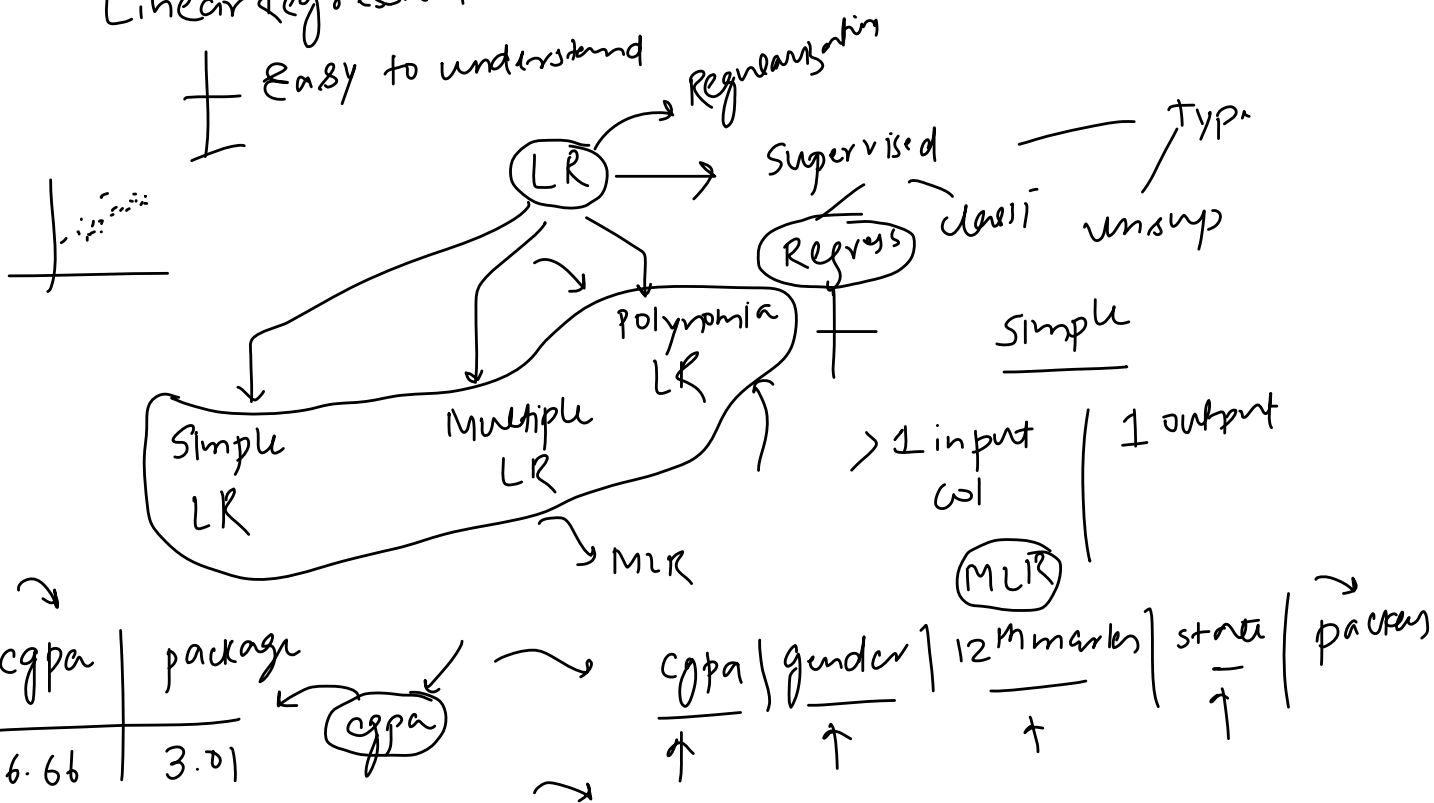 Linear Regress
Easy to understand
Regularization
LR
Supervised
Type
Regress
classi
unsup
Polynomia
LR
Simple
Simple
LR
Multiple
LR
> 1 input
col
1 output
MLR
MLR
cgpa | package
6.66 | 3.01
cgpa
cgpa | gender | 12th marks | state |